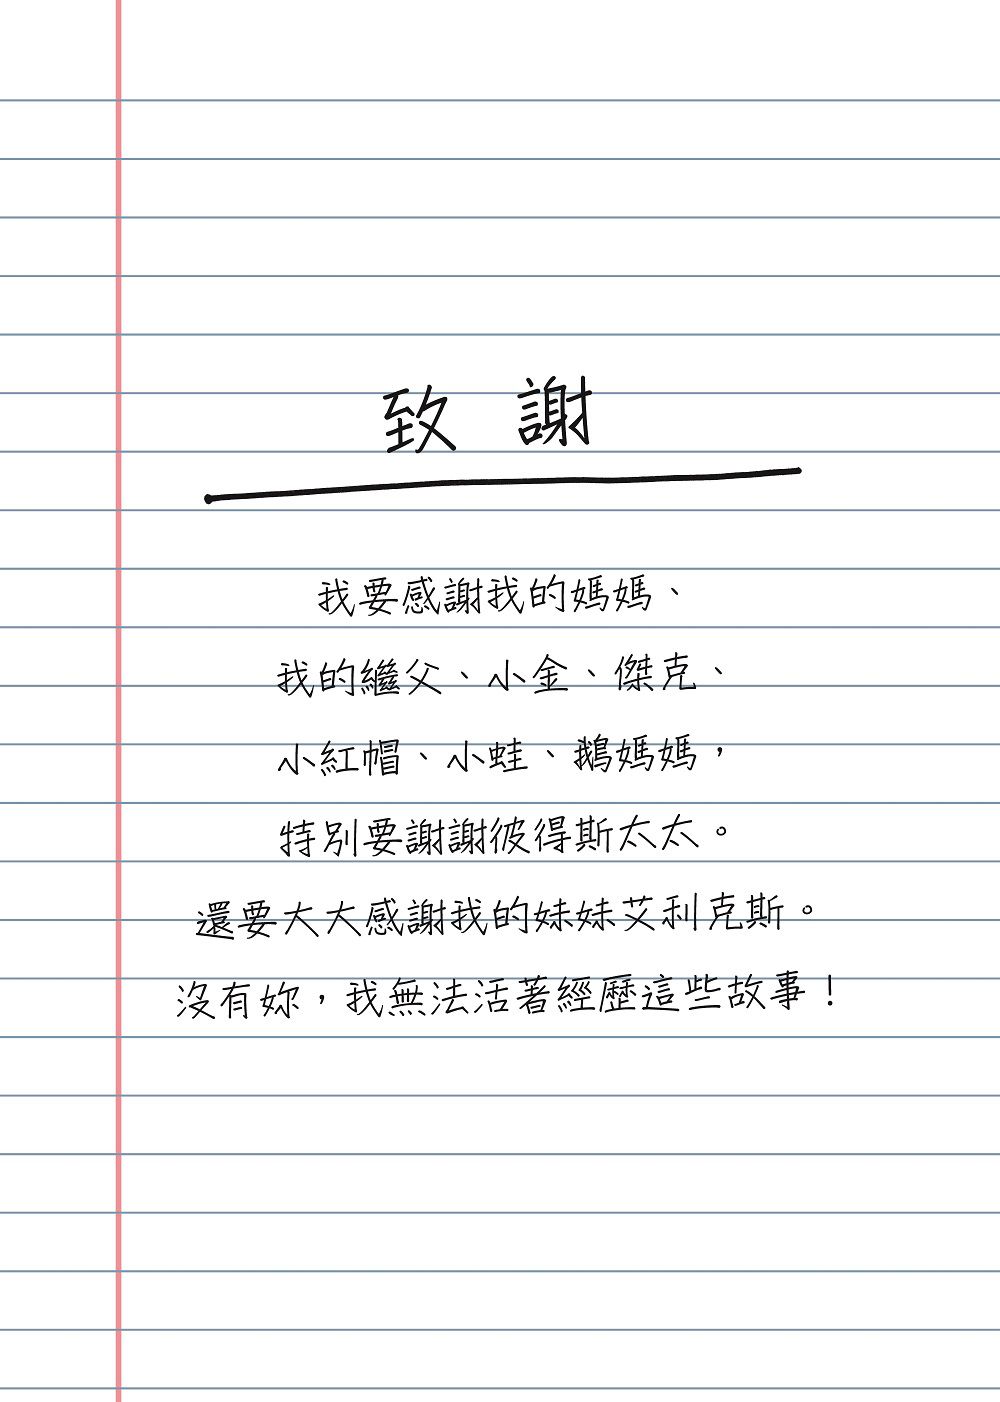 致謝
我要感謝我的媽媽、
我的繼父、小金、傑克、
小紅帽、小蛙、鵝媽媽，
特別要謝謝彼得斯太太。
還要大大感謝我的妹妹艾利克斯。
沒有妳，我無法活著經歷這些故事！